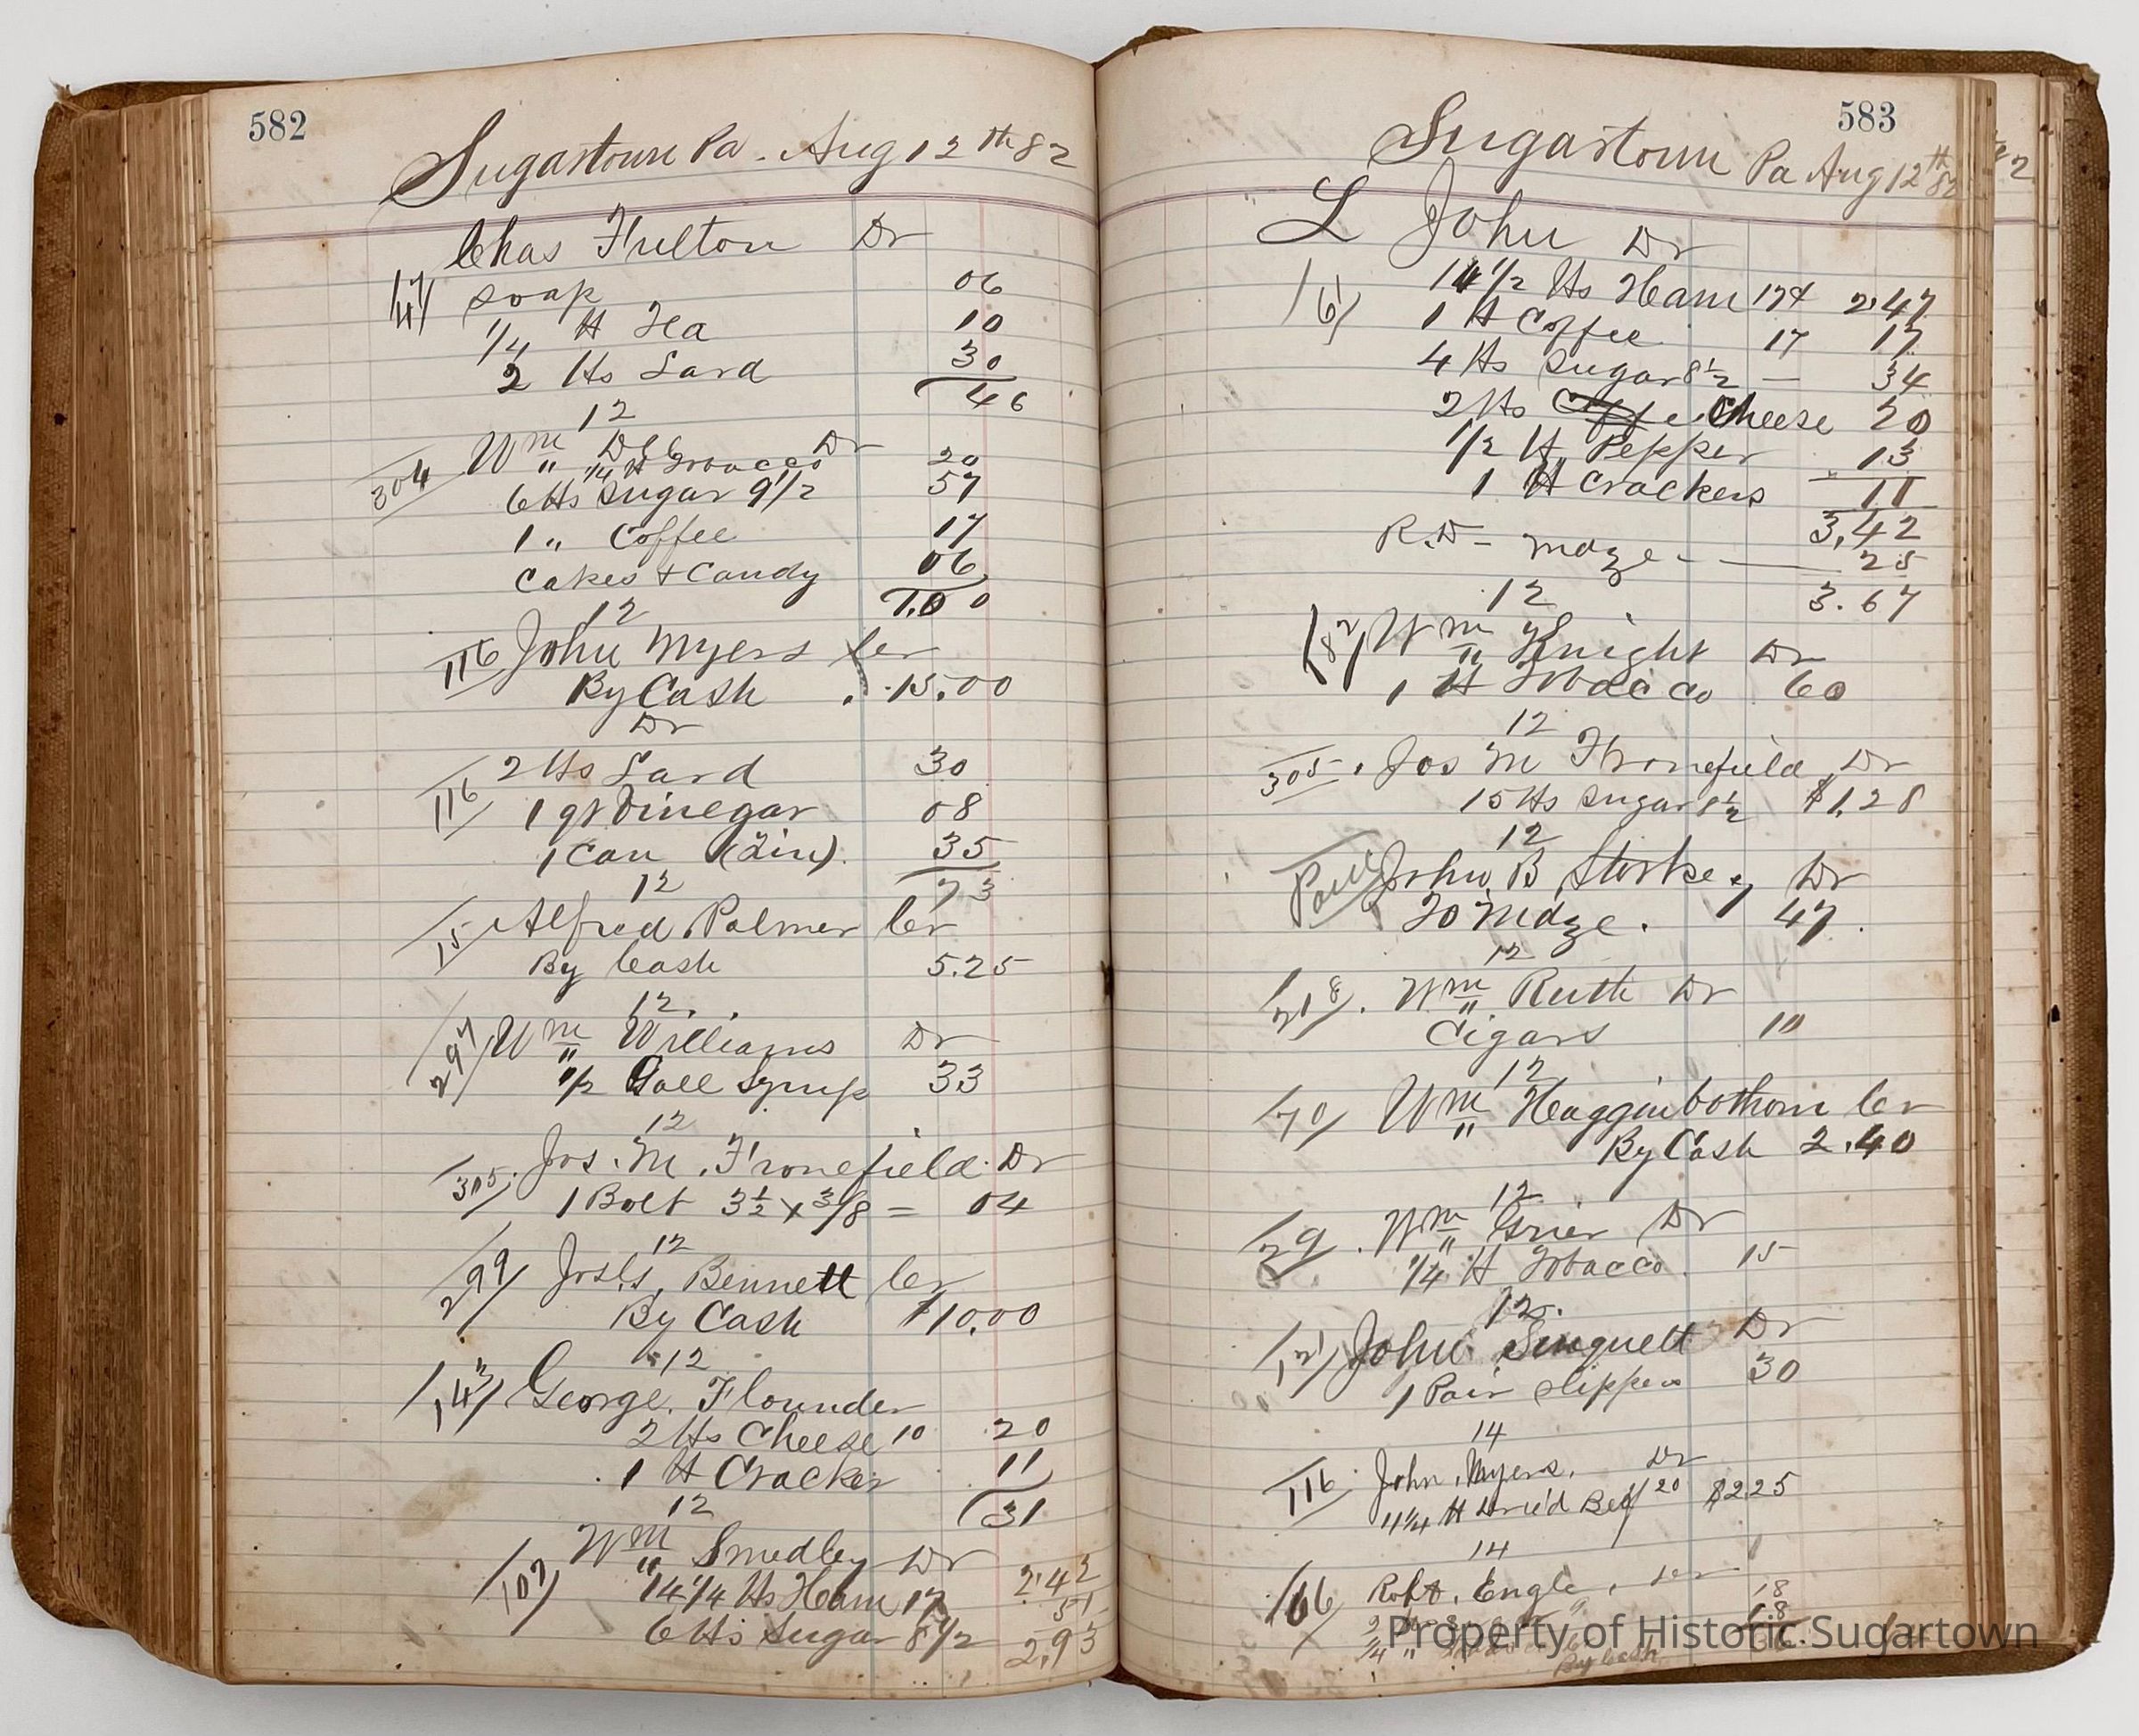 582
Sugartown Pa. Aug 12th 82
Chas Fulton Dr
147 Soap 06
1/4 lb Tea 10
2 lbs Lard 30
46
12
Wm Dr
304 " 1/4 lb Tobacco 20
6 lbs Sugar 9 1/2 57
1 " Coffee 17
Cakes & Candy 06
1.00
12
116 John Myers Cr
By Cash 15.00
Dr
2 lbs Lard 30
116 1 qt Vinegar 08
1 Can (Tin) 35
73
12
15 Alfred Palmer Cr
By Cash 5.25
12
297 Wm Williams Dr
1/2 Gall Syrup 33
12
305 Jos. M. Fronefield Dr
1 Bolt 3 1/2 x 3/8 = 04
12
299 Bennett Cr
By Cash $10.00
12
143 George Flounder
2 lbs Cheese 10 20
1 lb Cracker 11
31
12
Wm Smedley Dr
107 14 1/4 lbs Ham 17 2.42
51
6 lbs Sugar 8 1/2 2,93
583
Sugartown Pa Aug 12th 82
L John Dr
161 14 1/2 lbs Ham 17¢ 2.47
1 lb Coffee 17 17
4 lbs Sugar 8 1/2 — 34
2 lbs Coffe Cheese 20
1/2 lb Pepper 13
1 lb Crackers 11
3,42
R.D - mdze - 25
12 3.67
182 Wm Knight Dr
1 lb Tobacco 60
12
305 Jos M Fronefield Dr
15 lbs Sugar 8 1/2 $1.28
12
John B Dr
To Mdze. 47
12
218 Wm Ruth Dr
Cigars 10
12
70 Wm Hagginbothom Cr
By Cash 2.40
12
29 Wm Grier Dr
1/4 lb Tobacco 15
12
121 John Dr
1 Pair Slippers 30
14
116 John Myers. Dr
11 1/4 lb Dried Beef 20 $2.25
14
166 Robt. Engle,
18
18
By Cash
Property of Historic Sugartown